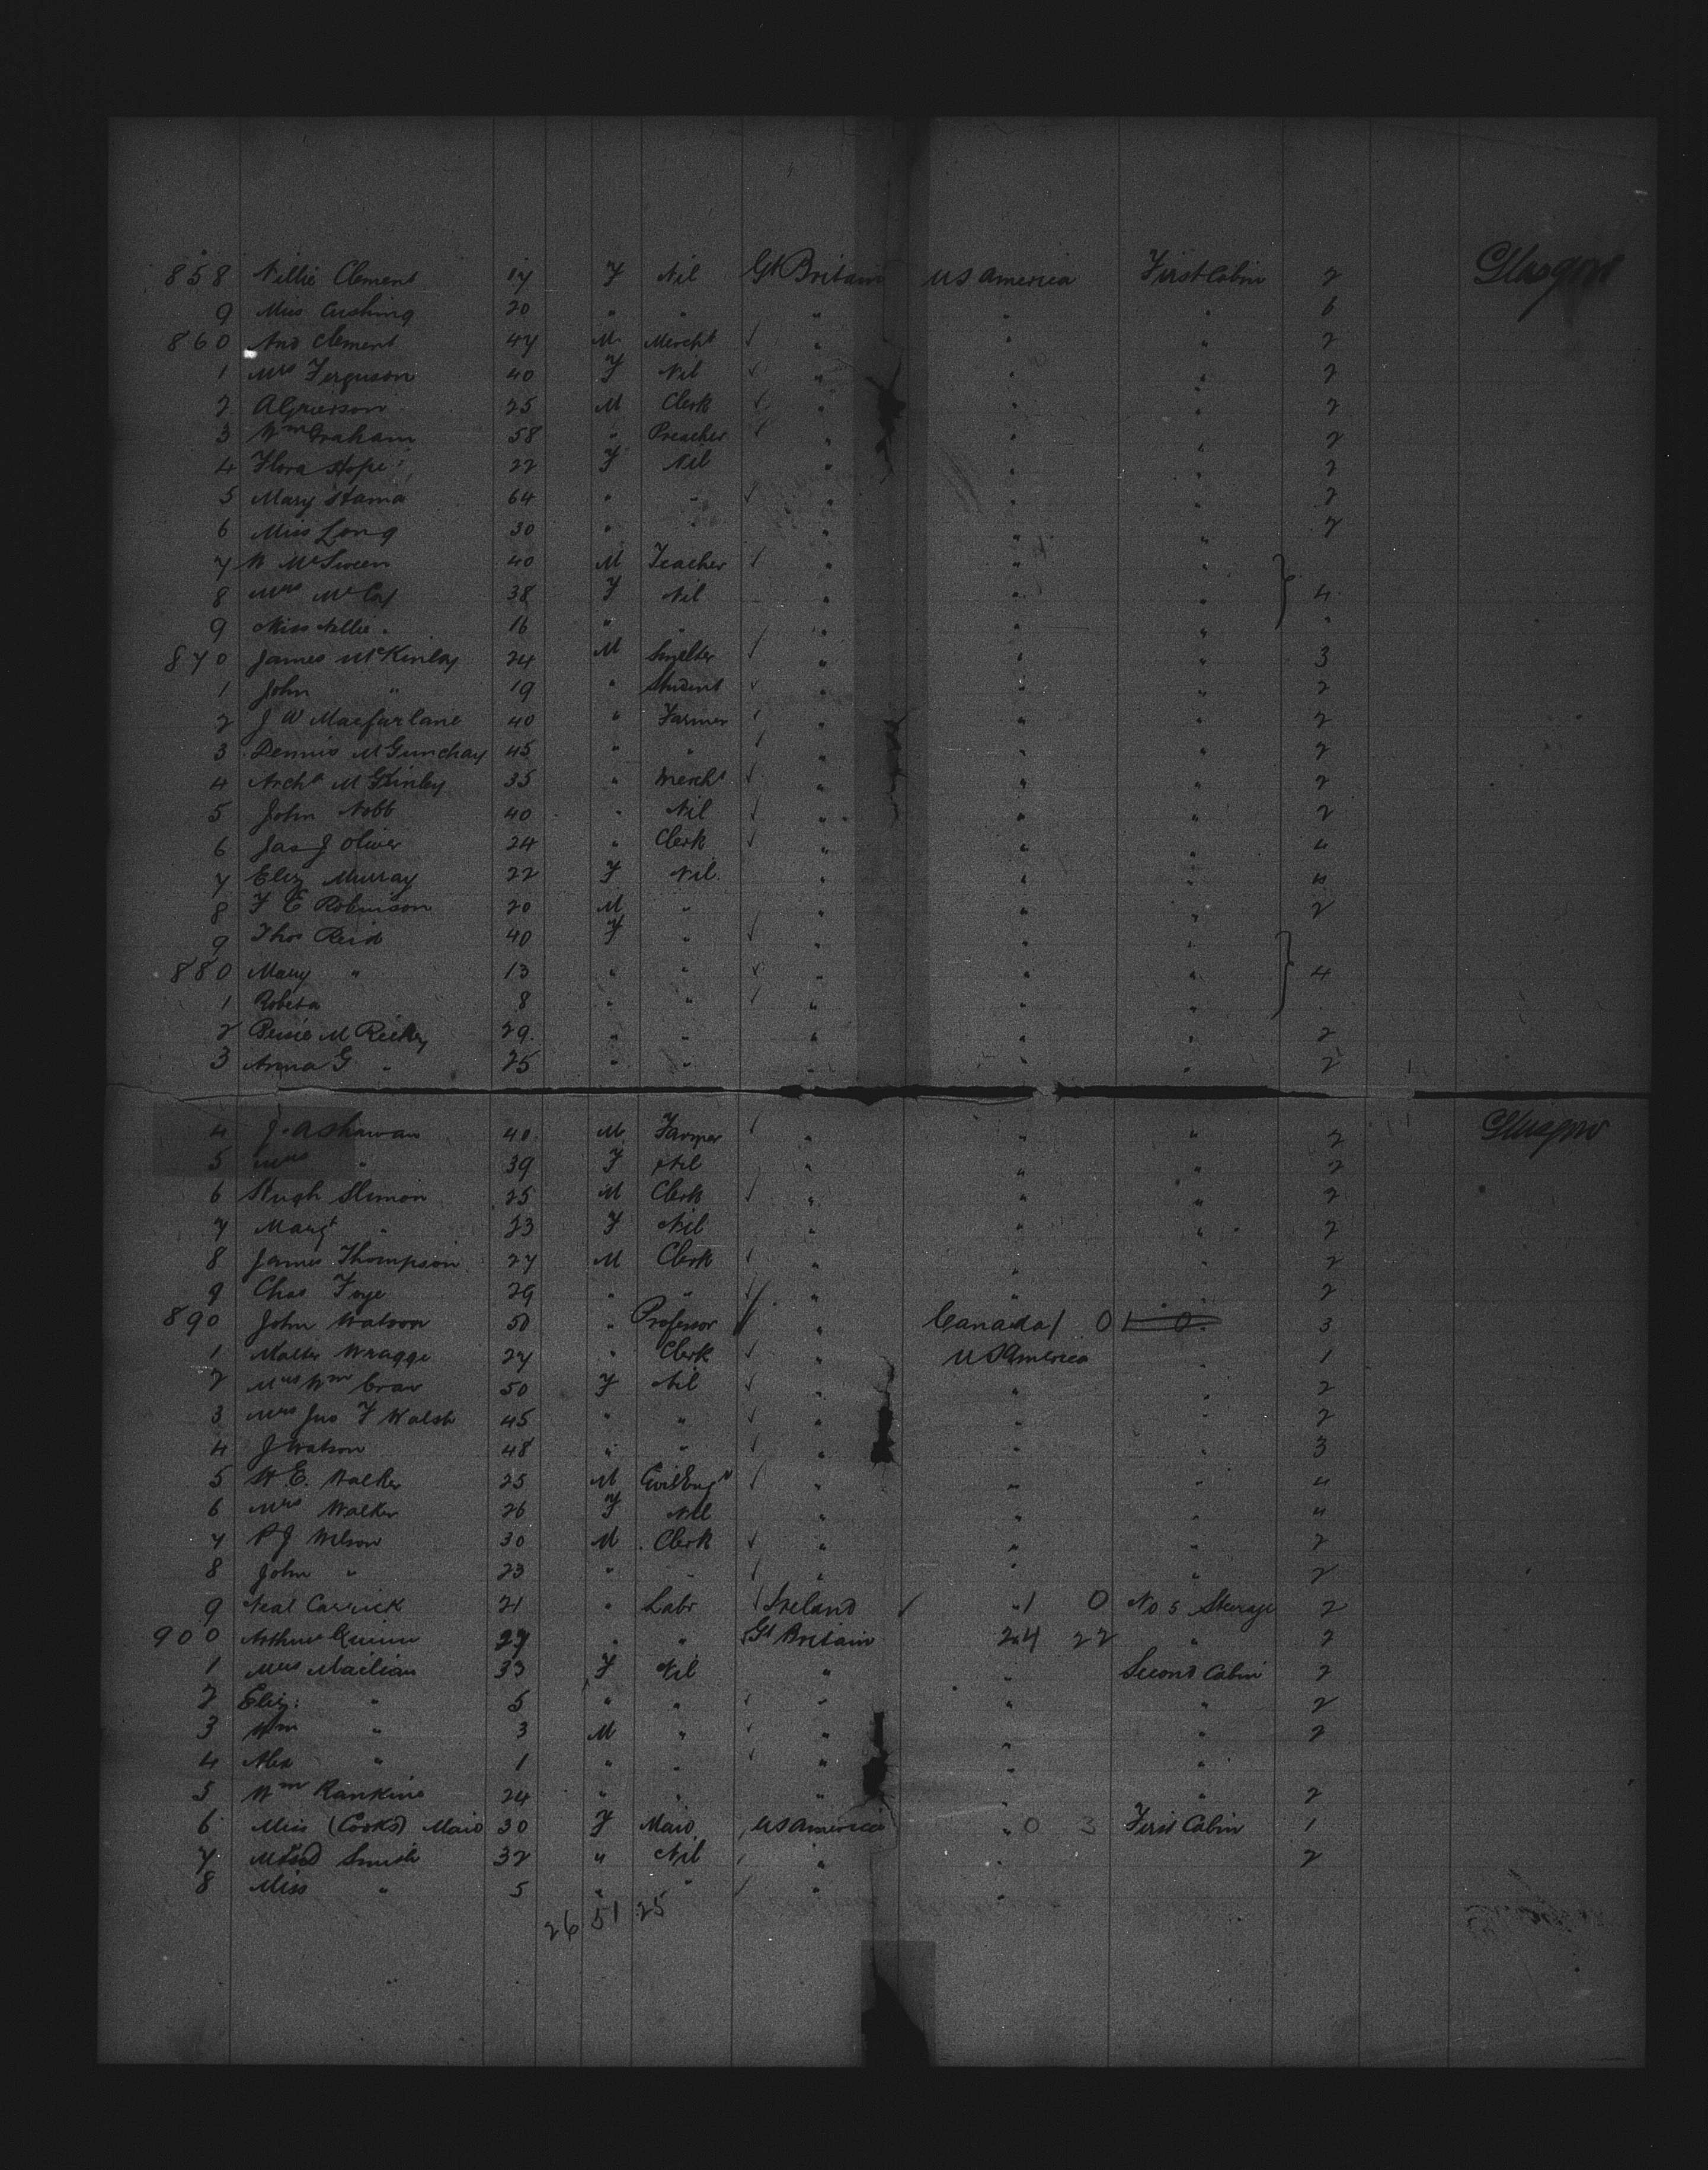 858 Nillie Clement 17 F Nil Gt Britain US America First Cabin 2 Glasgow
9 Miss Cushing 20 " " " " " 6
860 And Clement 47 M Mercht " " " 2
1 Mrs Ferguson 40 F Nil " " " 2
2 A Grierson 25 M Clerk " " " 2
3 Wm Graham 58 " Preacher " " " 2
4 Flora Hope 22 F Nil " " " 2
5 Mary 64 " " " " " 2
6 Miss Long 30 " " " " " 2
7 W McSween 40 M Teacher " " "
8 Mrs 38 F Nil " " " 4
9 Miss Nellie " 16 " " " " " "
870 James McKinlay 24 M Smelter " " " 3
1 John " 19 " Student " " " 2
2 J W Macfarlane 40 " Farmer " " " 2
3 Dennis 45 " " " " " 2
4 Archd M Ginley 35 " Mercht " " " 2
5 John Nobb 40 " Nil " " " 2
6 Jas J Oliver 24 " Clerk " " " 4
7 Eliz Murray 22 F Nil " " "
8 F E Robinson 20 M " " " " 2
9 Thos Reid 40 F " " " "
880 Mary " 13 " " " " " 4
1 Robeta 8 " " " " "
2 Bessie M 29 " " " " " 2
3 Anna G " 25 " " " " " 2
4 40 M Farmer " " " 2 Glasgow
5 Mrs " 39 F Nil " " " 2
6 Hugh Slimon 25 M Clerk " " " 2
7 Margt " 23 F Nil " " " 2
8 James Thompson 27 M Clerk " " " 2
9 Chas Foye 29 " " " " " 2
890 John Watson 50 " Professor " Canada 1 0 3
1 Walter Wragge 27 " Clerk " US America " 1
2 Mrs Wm 50 F Nil " " " 2
3 Mrs Jno F Walsh 45 " " " " " 2
4 J Watson 48 " " " " " 3
5 W E. Walker 25 M Civil Engr " " " 4
6 Mrs Walker 26 F Nil " " " 4
7 P J Wilson 30 M Clerk " " " 2
8 John " 23 " " " " " 2
9 Neal Carrick 21 " Labr Ireland " 1 0 No 5 Steerage 2
900 Arthur Quinn 27 " " Gt Britain 24 22 " 2
1 Mrs 33 F Nil " " Second Cabin 2
2 Eliz: " 5 " " " " " 2
3 Wm " 3 M " " " " 2
4 Alex " 1 " " " " "
5 Wm Rankine 24 " " " " " 2
6 Miss (Cooks) Maid 30 F Maid US America " 0 3 First Cabin 1
7 Smith 32 " Nil " " 2
8 Miss " 5 " " " "
26 51 25